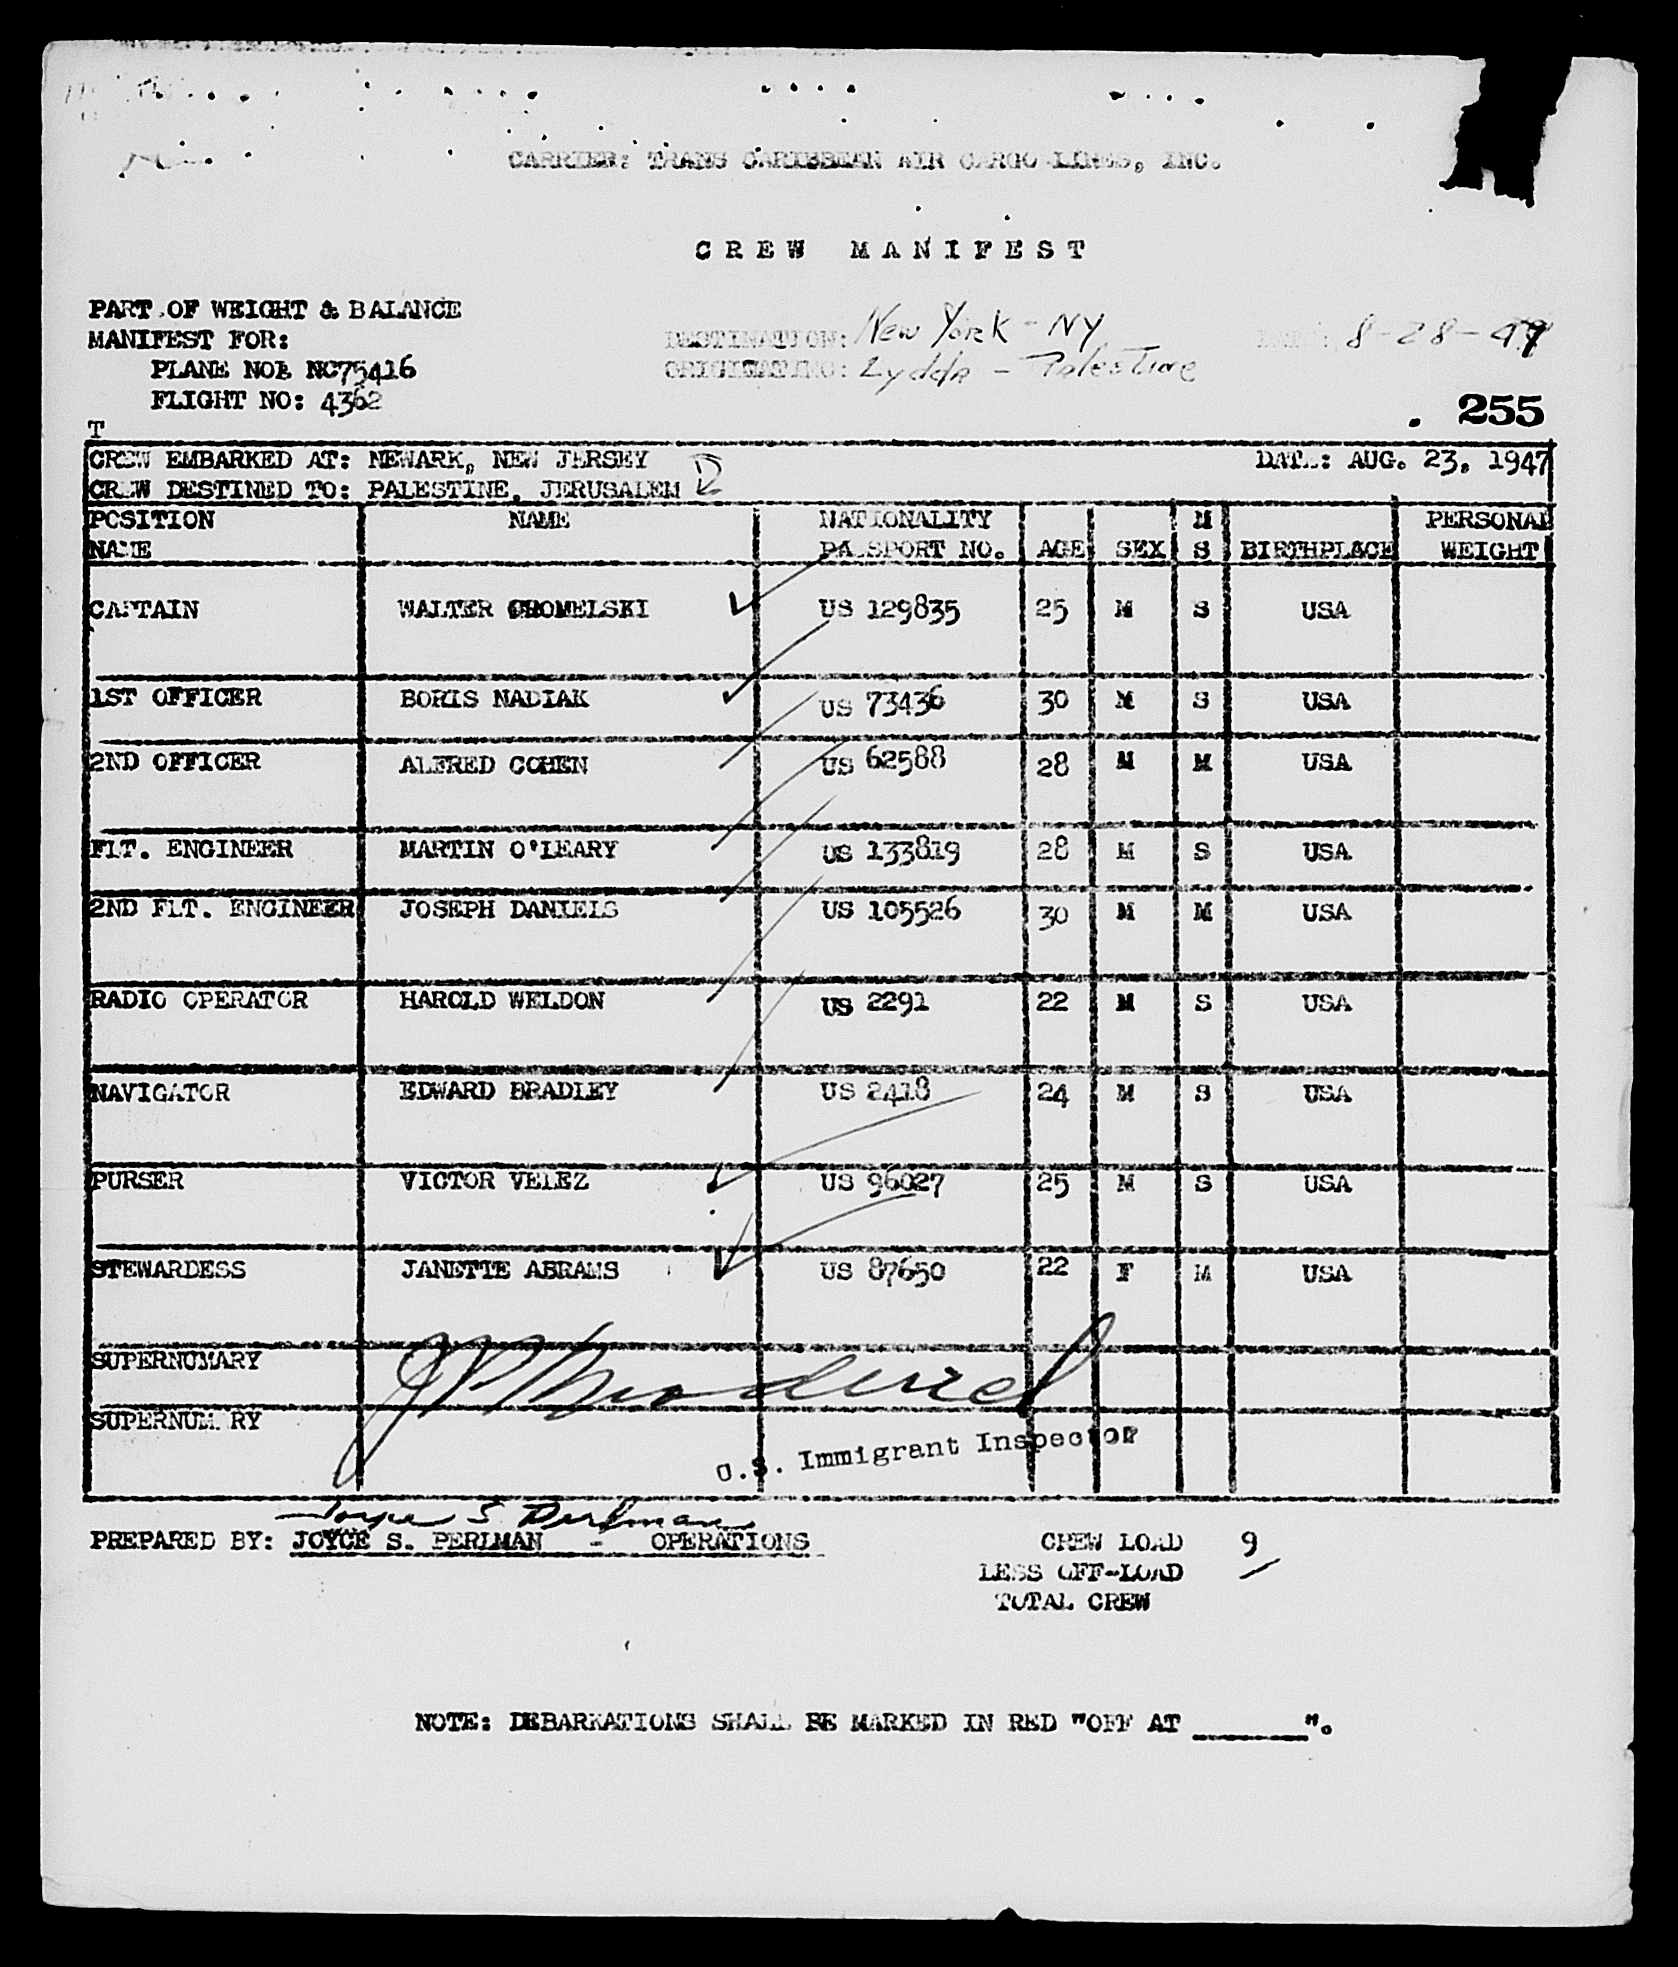 CARRIER: TRANS CARIBBEAN AIR CARGO LINES, INC.
CREW MANIFEST
PART OF WEIGHT & BALANCE
MANIFEST FOR:
DESTINATION: New York - NY
DATE: 8-28-47
PLANE NO: NC75416
ORIGINATING: Lydda - Palestine
FLIGHT NO: 4362
. 255
T
CREW EMBARKED AT: NEWARK, NEW JERSEY DATE: AUG. 23, 1947
CREW DESTINED TO: PALESTINE, JERUSALEM
POSITION NAME NATIONALITY M PERSONAL
NAME PASSPORT NO. AGE SEX S BIRTHPLACE WEIGHT
CAPTAIN WALTER CHOMELSKI US 129835 25 M S USA
1ST OFFICER BORIS NADIAK US 73436 30 M S USA
2ND OFFICER ALFRED COHEN US 62588 28 M M USA
FLT. ENGINEER MARTIN O'LEARY US 133819 28 M S USA
2ND FLT. ENGINEER JOSEPH DANIELS US 105526 30 M M USA
RADIO OPERATOR HAROLD WELDON US 2291 22 M S USA
NAVIGATOR EDWARD BRADLEY US 2418 24 M S USA
PURSER VICTOR VELEZ US 96027 25 M S USA
STEWARDESS JANETTE ABRAMS US 87650 22 F M USA
SUPERNUMARY
SUPERNUMARY
U.S. Immigrant Inspector
Joyce S. Perlman
PREPARED BY: JOYCE S. PERLMAN - OPERATIONS CREW LOAD 9
LESS OFF-LOAD
TOTAL CREW
NOTE: DEBARKATIONS SHALL BE MARKED IN RED "OFF AT ________".